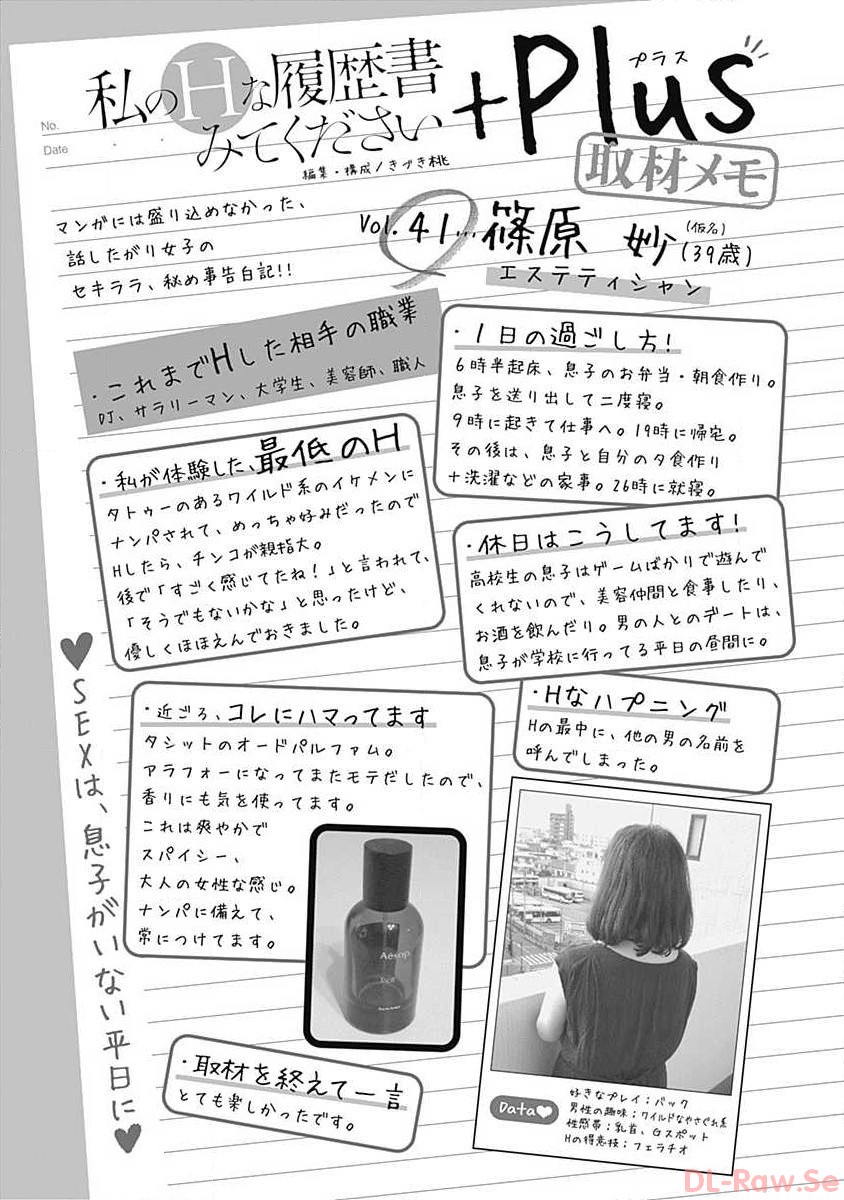 No.
Date
私のHな履歴書
みてください
+Plus
プラス
取材メモ
編集・構成/きづき桃
マンガには盛り込めなかった、
話したがり女子の
セキララ、秘め事告白記!!
Vol.41…篠原 妙(39歳)
(仮名)
エステティシャン
・これまでHした相手の職業
DJ、サラリーマン、大学生、美容師、職人
・1日の過ごし方!
6時半起床、息子のお弁当・朝食作り。
息子を送り出して二度寝。
9時に起きて仕事へ。19時に帰宅。
その後は、息子と自分の夕食作り
+洗濯などの家事。26時に就寝。
・私が体験した、最低のH
タトゥーのあるワイルド系のイケメンに
ナンパされて、めっちゃ好みだったので
Hしたら、チンコが親指大。
後で「すごく感じてたね!」と言われて、
「そうでもないかな」と思ったけど、
優しくほほえんでおきました。
・休日はこうしてます!
高校生の息子はゲームばかりで遊んで
くれないので、美容仲間と食事したり、
お酒を飲んだり。男の人とのデートは、
息子が学校に行ってる平日の昼間に。
・Hなハプニング
Hの最中に、他の男の名前を
呼んでしまった。
・近ごろ、コレにハマってます
タシットのオードパルファム。
アラフォーになってまたモテだしたので、
香りにも気を使ってます。
これは爽やかで
スパイシー、
大人の女性な感じ。
ナンパに備えて、
常につけてます。
Aēsop
♥SEXは、息子がいない平日に♥
・取材を終えて一言
とても楽しかったです。
Data♥
好きなプレイ;バック
男性の趣味;ワイルドなやさぐれ系
性感帯;乳首、Gスポット
Hの得意技;フェラチオ
DL-Raw.Se